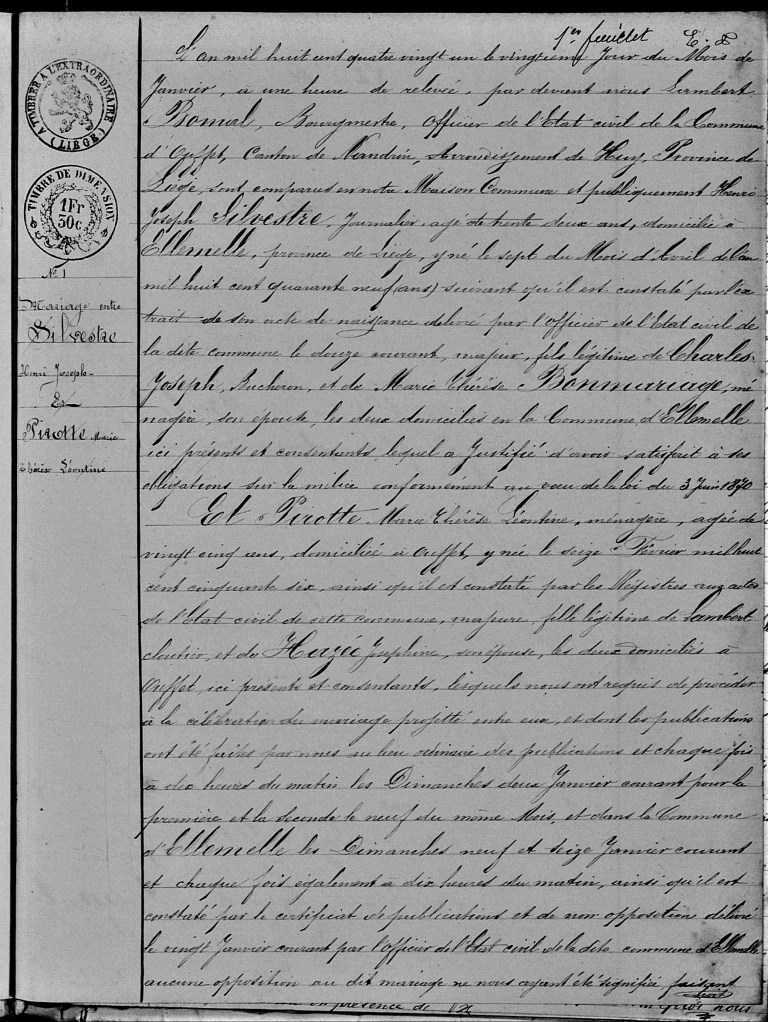 1er feuillet
A TIMBRER A L'EXTRAORDINAIRE
(LIÈGE)
TIMBRE DE DIMENSION
1 Fr
30c
N° 1
Mariage entre
Silvestre
Henri Joseph
Et
Pirotte Marie
Thérèse Léontine
L'an mil huit cent quatre vingt un le vingtième jour du Mois de
Janvier, à une heure de relevée, par devant nous Lambert
Bomal, Bourgmestre, Officier de l'Etat civil de la Commune
d'Oeffet, Canton de Nandrin, Arrondissement de Huy, Province de
Liège, sont comparus en notre Maison Commune et publiquement Henri
Joseph Silvestre, Journalier, agé de trente deux ans, domicilié à
Ellemelle, province de Liege, y né le sept du Mois d'Avril de l'an
mil huit cent quarante neuf (ans) suivant qu'il est constaté par l'ex
trait de son acte de naissance délivré par l'officier de l'Etat civil de
la dite commune le douze courant, majeur, fils légitime de Charles
Joseph, Bucheron, et de Marie Thérèse Bonmariage, mé
nagère, son epouse, les deux domiciliés en la Commune d'Ellemelle
ici présents et consentants, lequel a Justifié d'avoir satisfait à ses
obligations sur la milice conformément au vœu de la loi du 3 Juin 1870
Et Pirotte Marie Thérèse Léontine, ménagère, agée de
vingt cinq ans, domiciliée à Oeffet, y née le seize Février mil huit
cent cinquante six, ainsi qu'il est constaté par les Régistres aux actes
de l'Etat civil de cette commune, majeure, fille légitime de Lambert
cloutier, et de Huzée Josephine, son épouse, les deux domiciliés à
Oeffet, ici présents et consentants, lesquels nous ont requis de procéder
à la célébration du mariage projetté entre eux, et dont les publications
ont été faites par nous au lieu ordinaire des publications et chaque fois
à dix heures du matin les Dimanches deux Janvier courant pour la
première et la seconde le neuf du même Mois, et dans la Commune
d'Ellemelle les Dimanches neuf et seize Janvier courant
et chaque fois également à dix heures du matin, ainsi qu'il est
constaté par le certificat de publications et de non opposition délivré
le vingt Janvier courant par l'officier de l'Etat civil de la dite commune d'Ellemelle
aucune opposition au dit mariage ne nous ayant été signifiée faisant
droit
en présence de nous